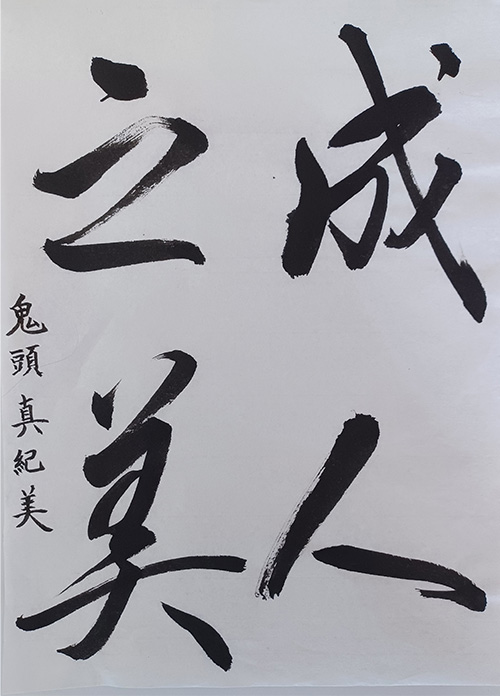 成人
之美
鬼頭真紀美